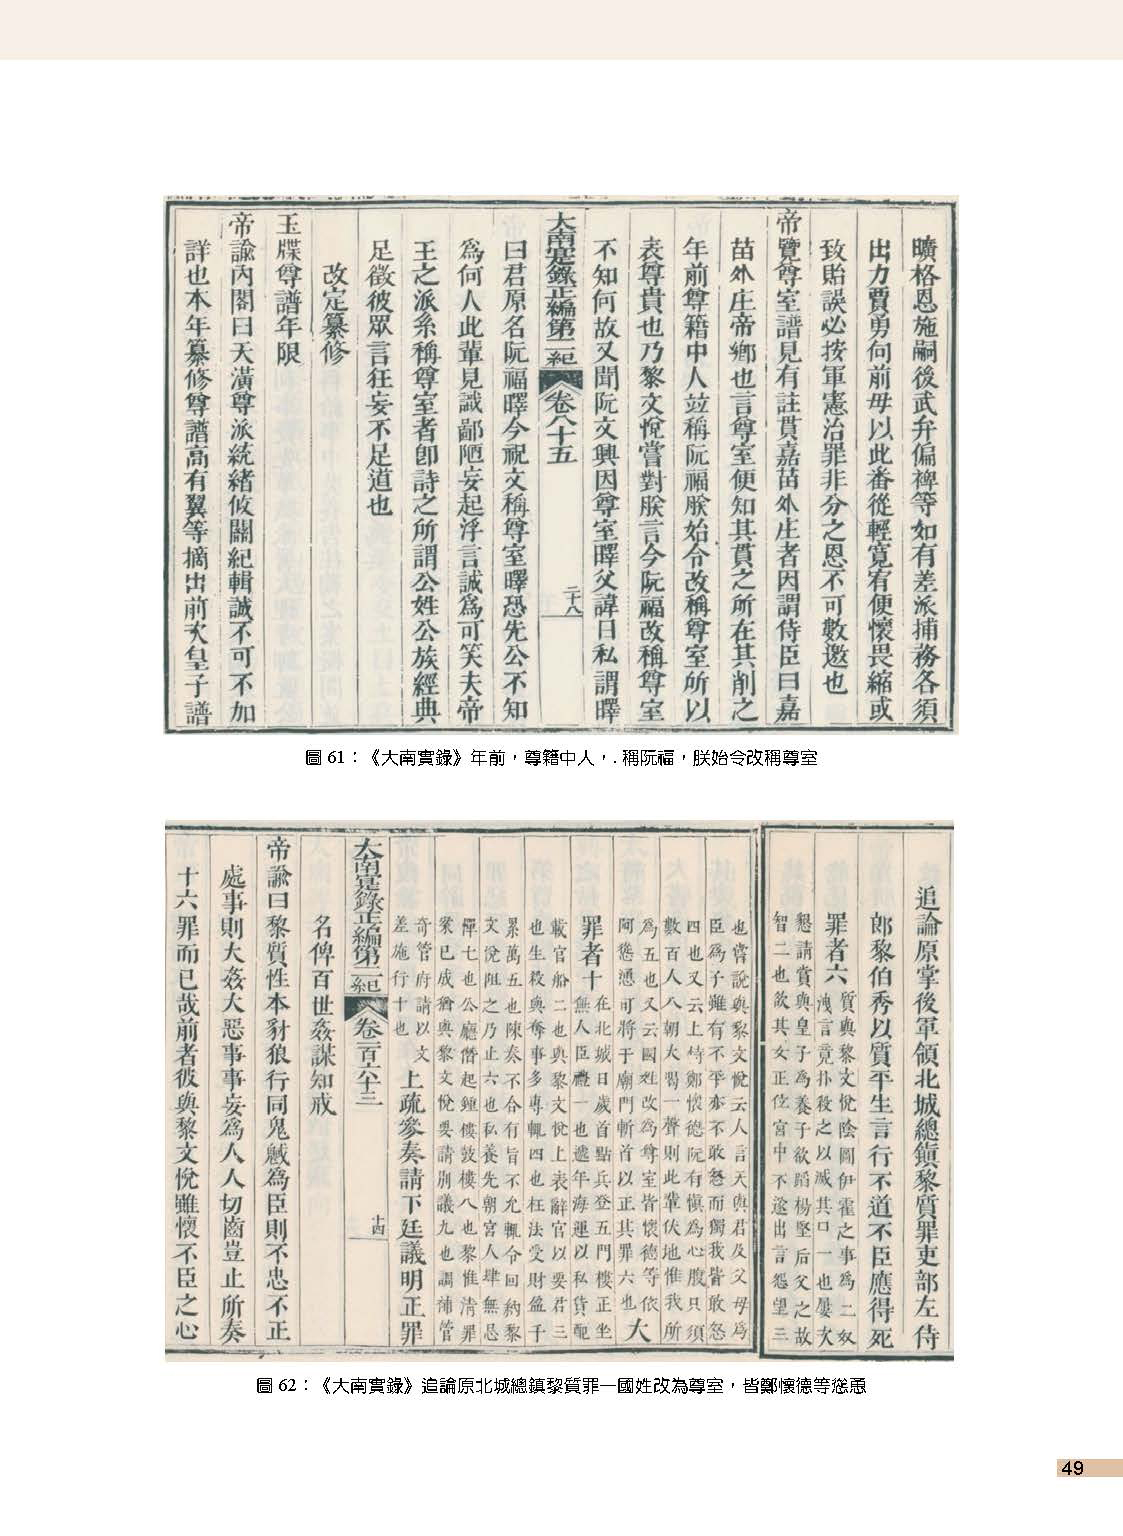 曠格恩施嗣後武弁偏裨等如有差派捕務各須
出力賈勇向前毋以此番從輕寬宥便懷畏縮或
致貽誤必按軍憲治罪非分之恩不可數邀也
帝覽尊室譜見有註貫嘉苗外庄者因謂侍臣曰嘉
苗外庄帝鄉也言尊室便知其貫之所在其削之
年前尊籍中人竝稱阮福朕始令改稱尊室所以
表尊貴也乃黎文悅嘗對朕言今阮福改稱尊室
不知何故又聞阮文興因尊室㬢父諱日私謂㬢
大南寔錄正編第二紀 卷八十五 二十八
曰君原名阮福㬢今祝文稱尊室㬢恐先公不知
爲何人此輩見識鄙陋妄起浮言誠爲可笑夫帝
王之派系稱尊室者卽詩之所謂公姓公族經典
足徵彼眾言狂妄不足道也
改定纂修
玉牒尊譜年限
帝諭內閣曰天潢尊派統緒攸關紀輯誠不可不加
詳也本年纂修尊譜高有翼等摘出前次皇子譜
圖 61：《大南實錄》年前，尊籍中人，. 稱阮福，朕始令改稱尊室
追論原掌後軍領北城總鎮黎質罪吏部左侍
郎黎伯秀以質平生言行不道不臣應得死
罪者六 質與黎文悅陰圖伊霍之事爲二奴
洩言竟扑殺之以滅其口一也屢次
懇請賞與皇子爲養子欲蹈楊堅后父之故
智二也欲其女正位宮中不遂出言怨望三
也嘗說與黎文悅云人言天與君及父母爲
臣爲子雖有不平亦不敢怒而獨我皆敢怒
四也又云上恃鄭懷德阮有愼爲心腹只須
數百人入朝大喝一聲則此輩伏地惟我所
爲五也又云國姓改爲尊室皆懷德等依
阿慫慂可將于廟門斬首以正其罪六也 大
罪者十 在北城日歲首點兵登五門樓正坐
無人臣禮一也遞年海運以私貨配
載官船二也與黎文悅上表辭官以要君三
也生殺與奪事多專輒四也枉法受財盈千
累萬五也陳奏不合有旨不允輒令回納黎
文悅阻之乃止六也私養先朝宮人肆無忌
憚七也公廳僭起鐘樓鼓樓八也黎惟清罪
案已成猶與黎文悅要請別議九也調補管
奇管府請以文
差施行十也 上疏參奏請下廷議明正罪
大南寔錄正編第二紀 卷一百六十三 十四
名俾百世姦謀知戒
帝諭曰黎質性本豺狼行同鬼蜮爲臣則不忠不正
處事則大姦大惡事事妄爲人人切齒豈止所奏
十六罪而已哉前者彼與黎文悅雖懷不臣之心
圖 62：《大南實錄》追論原北城總鎮黎質罪—國姓改為尊室，皆鄭懷德等慫恿
49